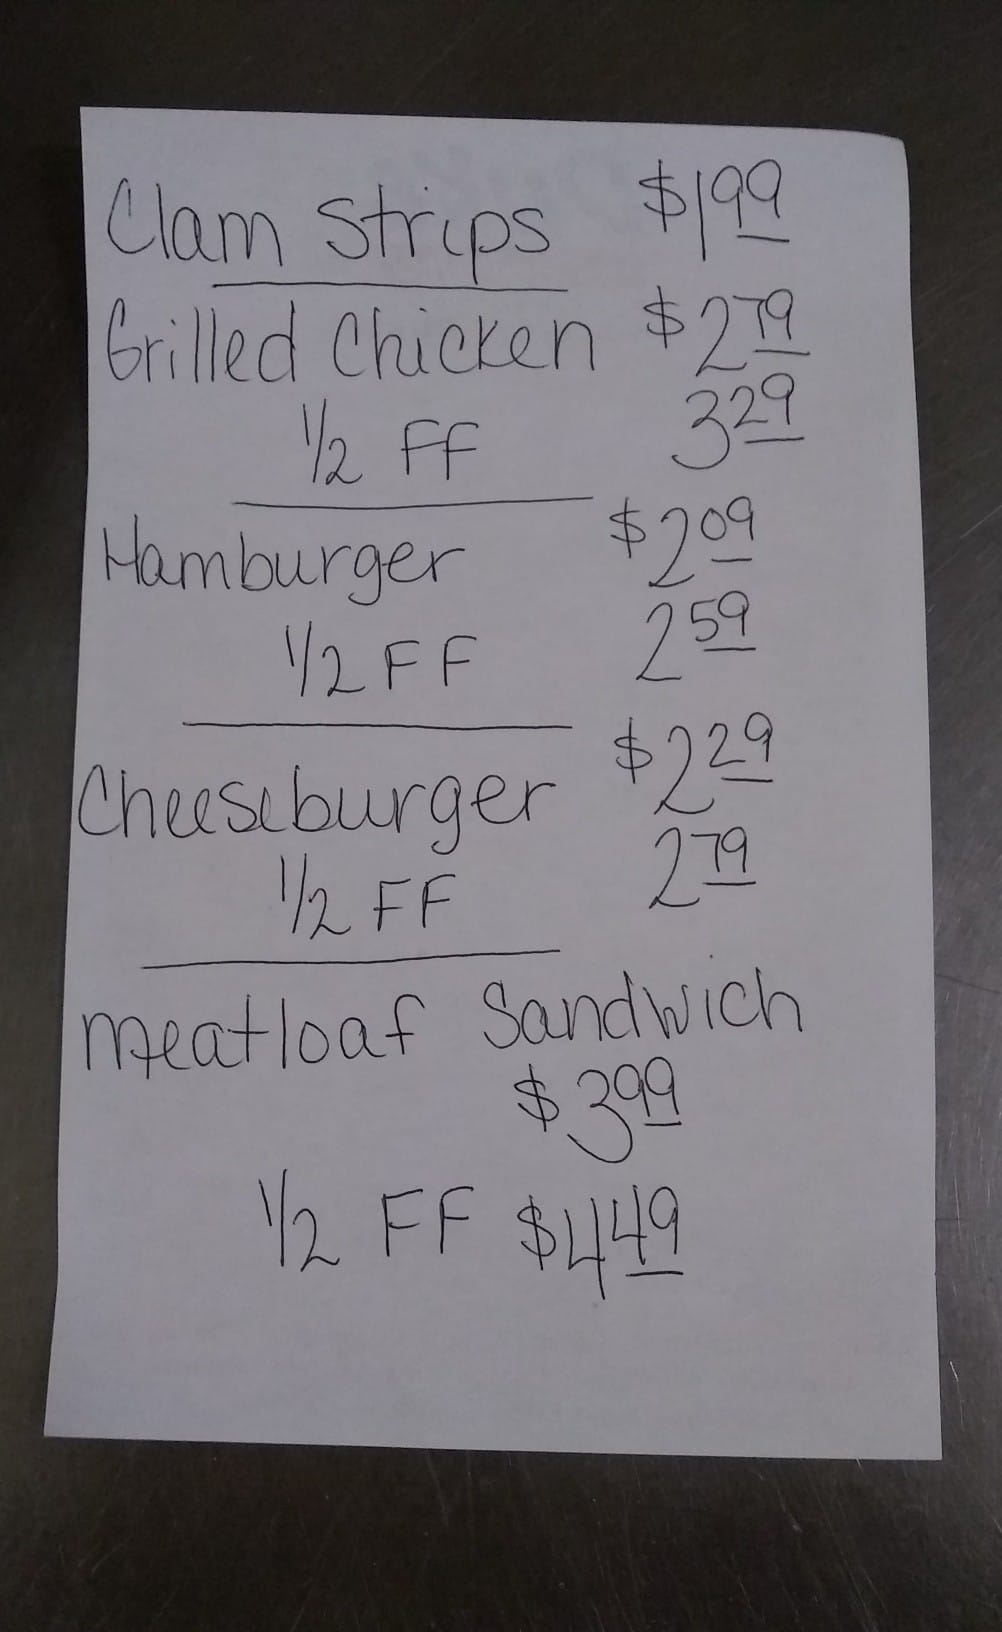 Clam Strips $1.99
Grilled Chicken $2.79
1/2 FF 3.29
Hamburger $2.09
1/2 FF 2.59
Cheeseburger $2.29
1/2 FF 2.79
Meatloaf Sandwich
$3.99
1/2 FF $4.49